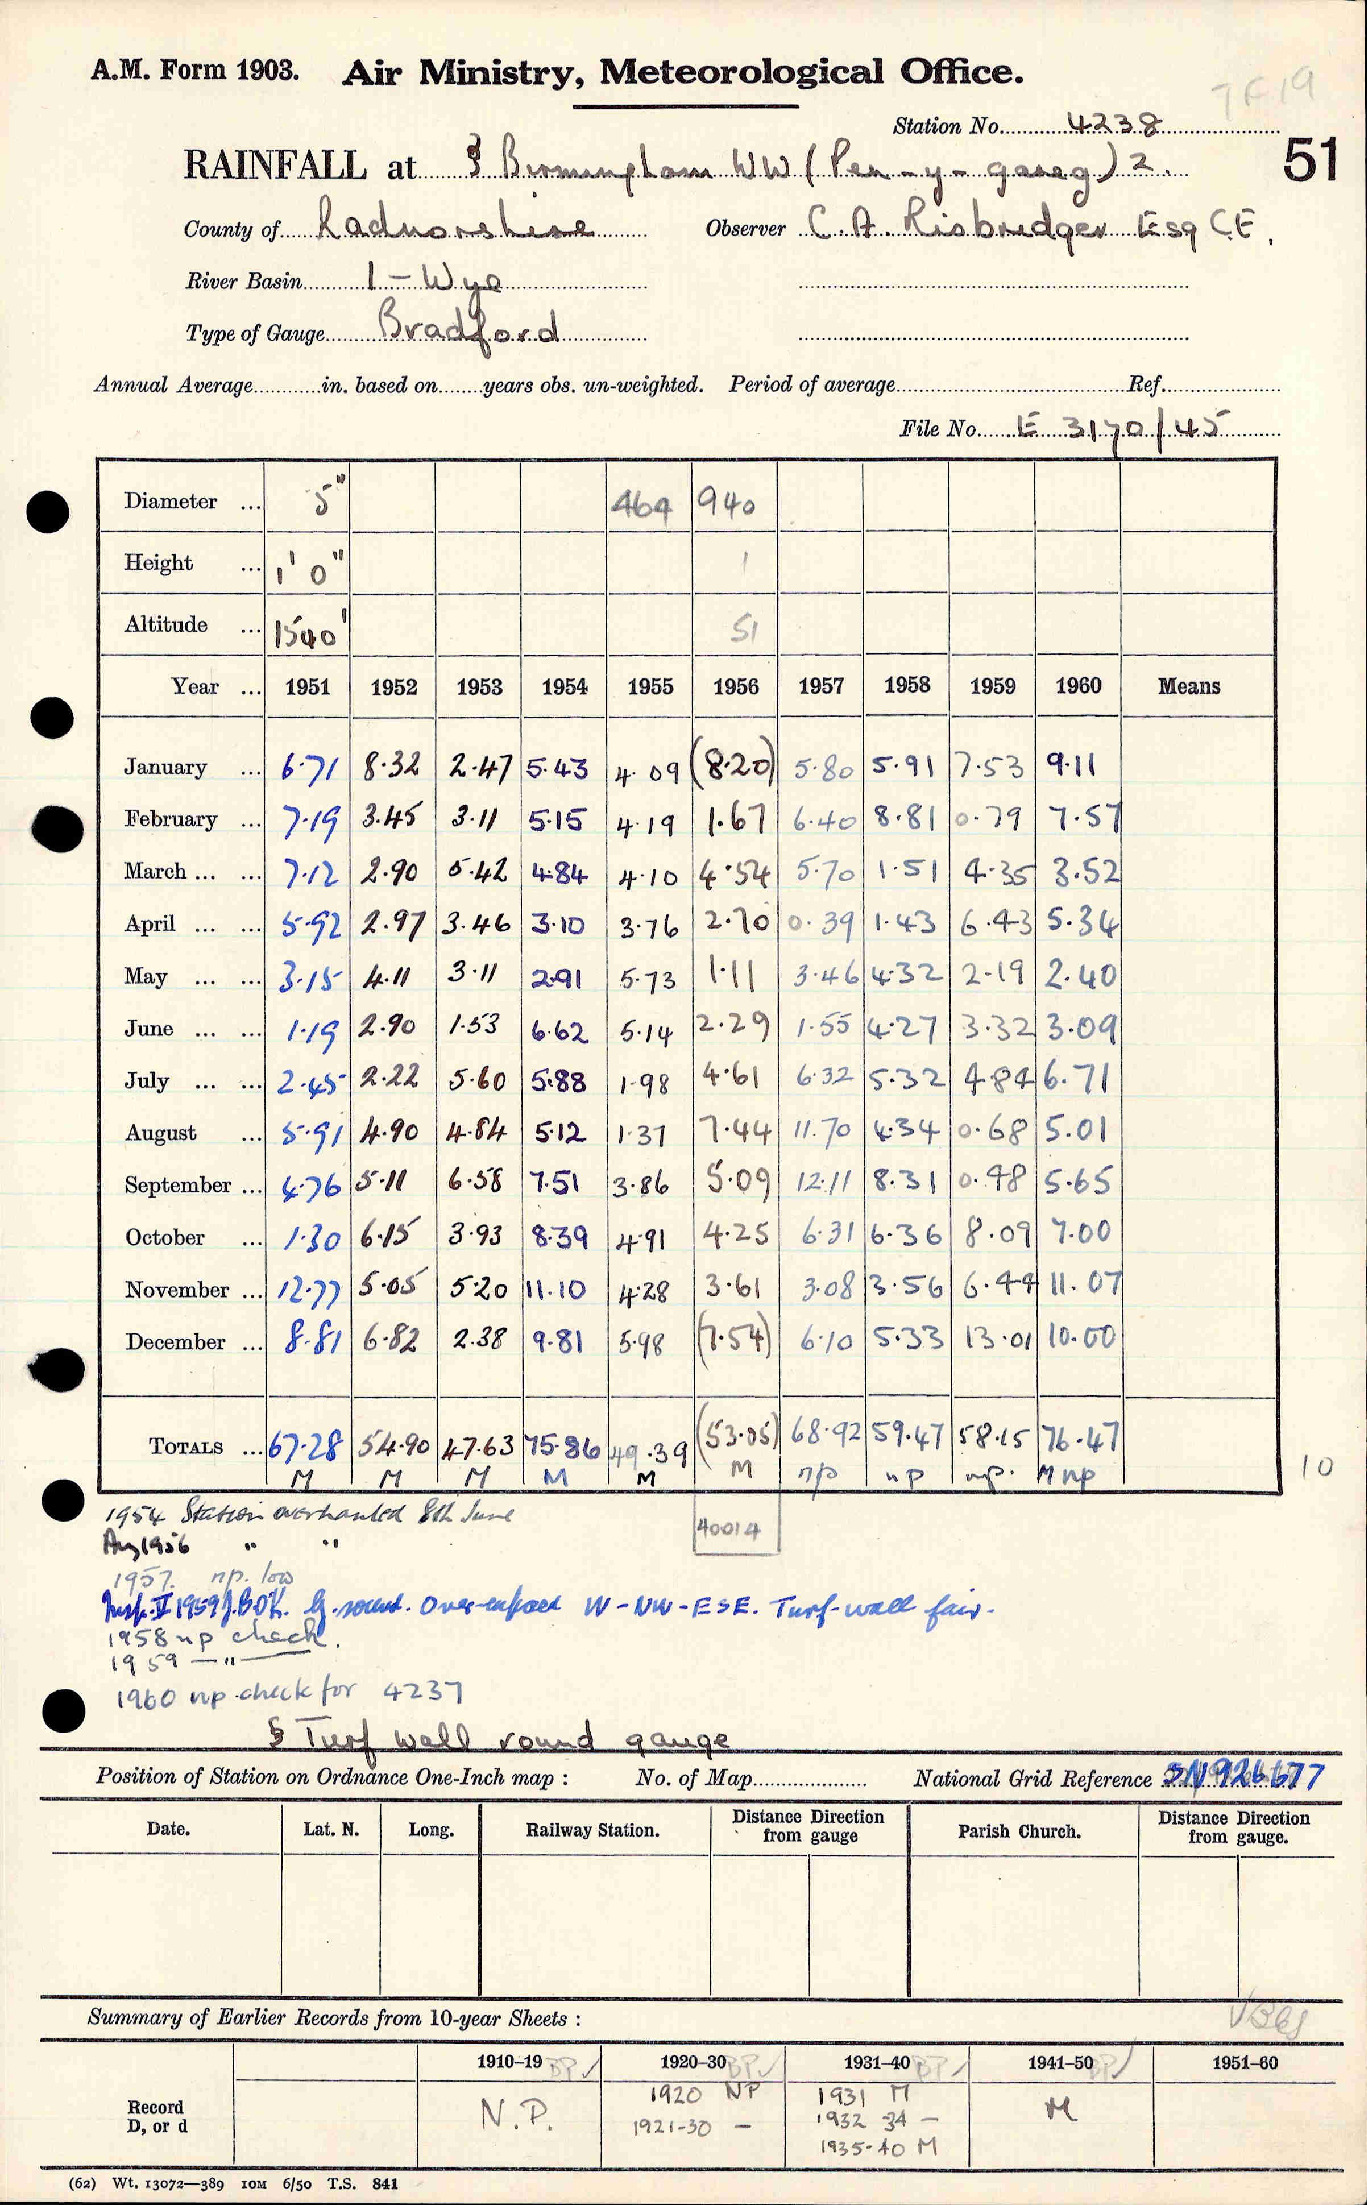 7F19
A.M. Form 1903. Air Ministry, Meteorological Office.
Station No. 4238
51
RAINFALL at § Birmingham WW (Pen-y-gareg) 2.
County of Radnorshire Observer C.A. Risbridger Esq C.E.
River Basin 1 - Wye
Type of Gauge Bradford
Annual Average in. based on years obs. un-weighted. Period of average Ref.
File No. E 3170/45
Diameter ... 5" 464 940
Height ... 1' 0" 1
Altitude ... 1540' 51
Year ... 1951 1952 1953 1954 1955 1956 1957 1958 1959 1960 Means
January ... 6.71 8.32 2.47 5.43 4.09 (8.20) 5.80 5.91 7.53 9.11
February ... 7.19 3.45 3.11 5.15 4.19 1.67 6.40 8.81 0.79 7.57
March ... ... 7.12 2.90 5.42 4.84 4.10 4.54 5.70 1.51 4.35 3.52
April ... ... 5.92 2.97 3.46 3.10 3.76 2.70 0.39 1.43 6.43 5.34
May ... ... 3.15 4.11 3.11 2.91 5.73 1.11 3.46 4.32 2.19 2.40
June ... ... 1.19 2.90 1.53 6.62 5.14 2.29 1.55 4.27 3.32 3.09
July ... ... 2.45 2.22 5.60 5.88 1.98 4.61 6.32 5.32 4.84 6.71
August ... 5.91 4.90 4.84 5.12 1.37 7.44 11.70 4.34 0.68 5.01
September ... 4.76 5.11 6.58 7.51 3.86 5.09 12.11 8.31 0.98 5.65
October ... 1.30 6.15 3.93 8.39 4.91 4.25 6.31 6.36 8.09 7.00
November ... 12.77 5.05 5.20 11.10 4.28 3.61 3.08 3.56 6.44 11.07
December ... 8.81 6.82 2.38 9.81 5.98 (7.54) 6.10 5.33 13.01 10.00
TOTALS ... 67.28 54.90 47.63 75.86 49.39 (53.05) 68.92 59.47 58.15 76.47
M M M M M M np np np. M np
10
1954 Station overhauled 8th June
40014
Aug 1956 " "
1957. np. low
Insp. II 1959 J.B OK. G. sound. Over-exposed W-NW-ESE. Turf-wall fair.
1958 np check.
1959 — " —
1960 np check for 4237
§ Turf wall round gauge
Position of Station on Ordnance One-Inch map : No. of Map National Grid Reference SN 926677
Date. Lat. N. Long. Railway Station. Distance Direction from gauge Parish Church. Distance Direction from gauge.
Summary of Earlier Records from 10-year Sheets :
1910-19 BP✓ 1920-30 BP✓ 1931-40 BP✓ 1941-50 BP✓ 1951-60
Record D, or d
N.P.
1920 NP
1921-30 -
1931 M
1932 34 -
1935-40 M
M
(62) Wt. 13072—389 10M 6/50 T.S. 841